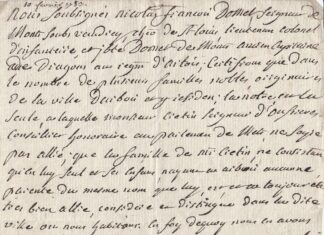 10 fevrier 1780
Nous Soubsignés nicolas francois Domet Seigneur de
Monts Soubs vaudrey, St Louis lieutenant colonel
d'infanterie et Domet de Monts ancien Capitaine
de Dragons au regim. d'Artois: Certiffions que dans
le nombre de plusieurs familles nobles originaires
de la ville D'arbois et y residen; la notre est la
Seule a laquelle monsieur cretin Seigneur d'
Conseillier honoraire au parlement de Metz ne Soye
pas allié; que la famille de mr Cretin ne Consistan
qu'en luy Seul et ses Enfans n'ayant en arbois aucune
parente du mesme nom que luy, est et a toujour ete
tres bien allié, considerée et distinguée dans la dite
ville ou nous habitons. En foy dequoy nous en avons